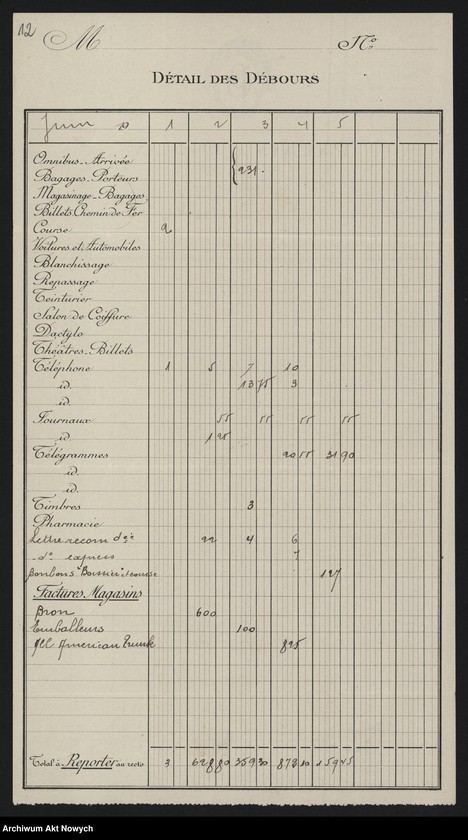 12
M Nº
DÉTAIL DES DÉBOURS
Juin 1 2 3 4 5
Omnibus-Arrivée
Bagages-Porteurs 231.
Magasinage-Bagages
Billets Chemin de Fer
Course 2
Voitures et Automobiles
Blanchissage
Repassage
Teinturier
Salon de Coiffure
Dactylo
Théâtres-Billets
Téléphone 1 5 7 10
id. 13 75 3
id.
Journaux 55 55 55 55
id. 1 25
Télégrammes 20 55 31 90
id.
id.
Timbres 3
Pharmacie
Lettre recom 22 4 6
dº express 7
Bonbons "Boissier" et course 127
Factures Magasins
Bron 600
Emballeurs 100
American Trunk 895
Total à Reporter au recto 3 628 80 359 30 872 10 159 45